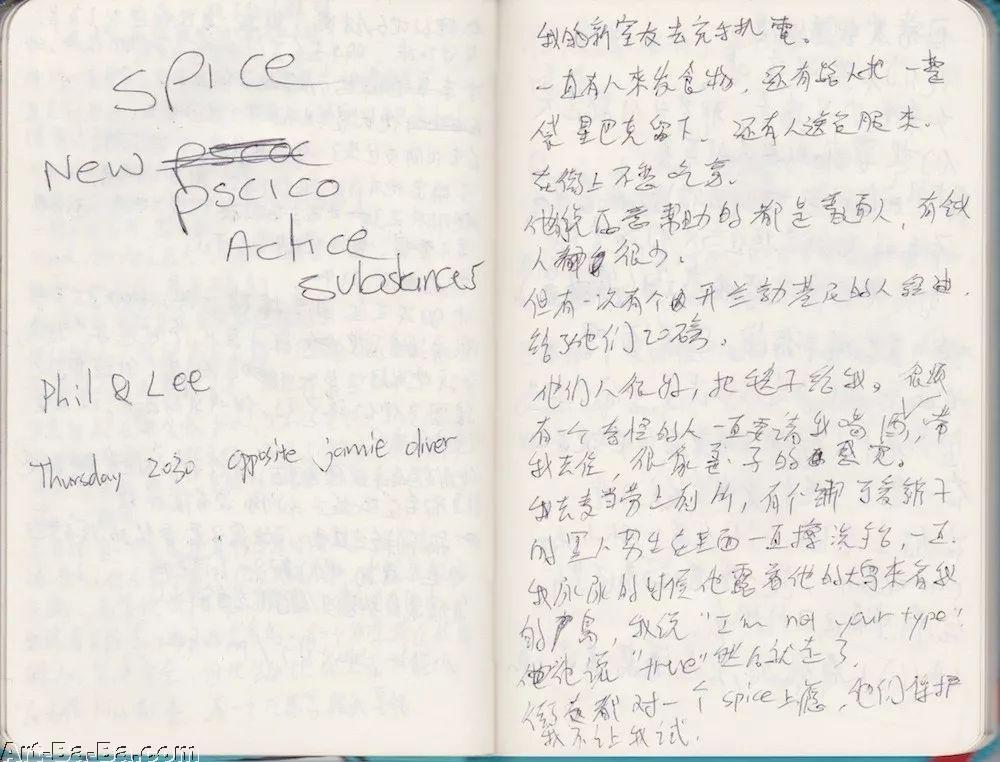 spice
New pscoc
pscico
Actice
substances
Phil & Lee
Thursday 2030 opposite jamie oliver
我的新室友去充手机電。
一直有人来发食物，还有路人把一整
袋星巴克留下，还有人送衣服来。
在街上不愁吃穿。
他说愿意帮助的都是普通人，有钱
人都很少。
但有一次有个开兰勃基尼的人经过，
给了他们20磅。
他们人很好，把毯子给我。
很烦
有一个奇怪的人一直要请我喝酒，带
我去住，很像妻子的感觉。
我去麦当劳上厕所，有个绑可爱辫子
的黑人男生在里面一直擦洗手台，一直
我尿尿的时候他露着他的大鸟来看我
的鸟，我说 "I'm not your type"，
他说 "true" 然后就走了。
街友都对一个spice上瘾，他们保护
我不让我试。
Art-Ba-Ba.com